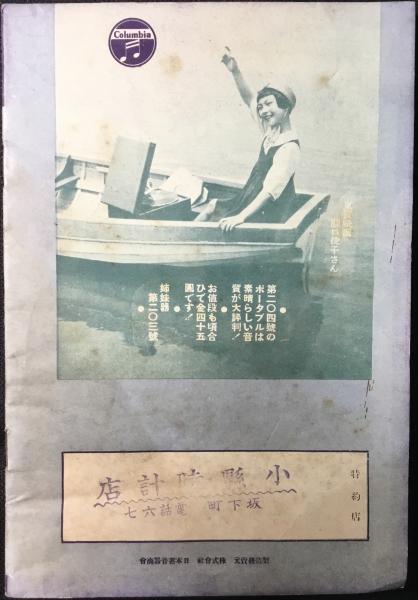 Columbia
第二〇四號の
ポータブルは
素晴らしい音
質が大評判!
お値段も頃合
ひで金四十五
圓です!
姉妹器
第二〇三號
特約店
小縣時計店
坂下町 電話六七
製造發賣元 株式會社 日本蓄音器商會